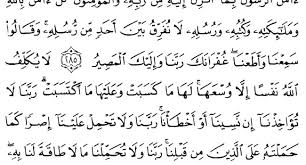 ءَامَنَ ٱلرَّسُولُ بِمَآ أُنزِلَ إِلَيْهِ مِن رَّبِّهِۦ وَٱلْمُؤْمِنُونَ ۚ كُلٌّ ءَامَنَ بِٱللَّهِ
وَمَلَٰٓئِكَتِهِۦ وَكُتُبِهِۦ وَرُسُلِهِۦ لَا نُفَرِّقُ بَيْنَ أَحَدٍ مِّن رُّسُلِهِۦ ۚ وَقَالُوا۟
سَمِعْنَا وَأَطَعْنَا ۖ غُفْرَانَكَ رَبَّنَا وَإِلَيْكَ ٱلْمَصِيرُ ٢٨٥ لَا يُكَلِّفُ
ٱللَّهُ نَفْسًا إِلَّا وُسْعَهَا ۚ لَهَا مَا كَسَبَتْ وَعَلَيْهَا مَا ٱكْتَسَبَتْ ۗ رَبَّنَا لَا
تُؤَاخِذْنَآ إِن نَّسِينَآ أَوْ أَخْطَأْنَا ۚ رَبَّنَا وَلَا تَحْمِلْ عَلَيْنَآ إِصْرًا كَمَا
حَمَلْتَهُۥ عَلَى ٱلَّذِينَ مِن قَبْلِنَا ۚ رَبَّنَا وَلَا تُحَمِّلْنَا مَا لَا طَاقَةَ لَنَا بِهِۦ ۖ